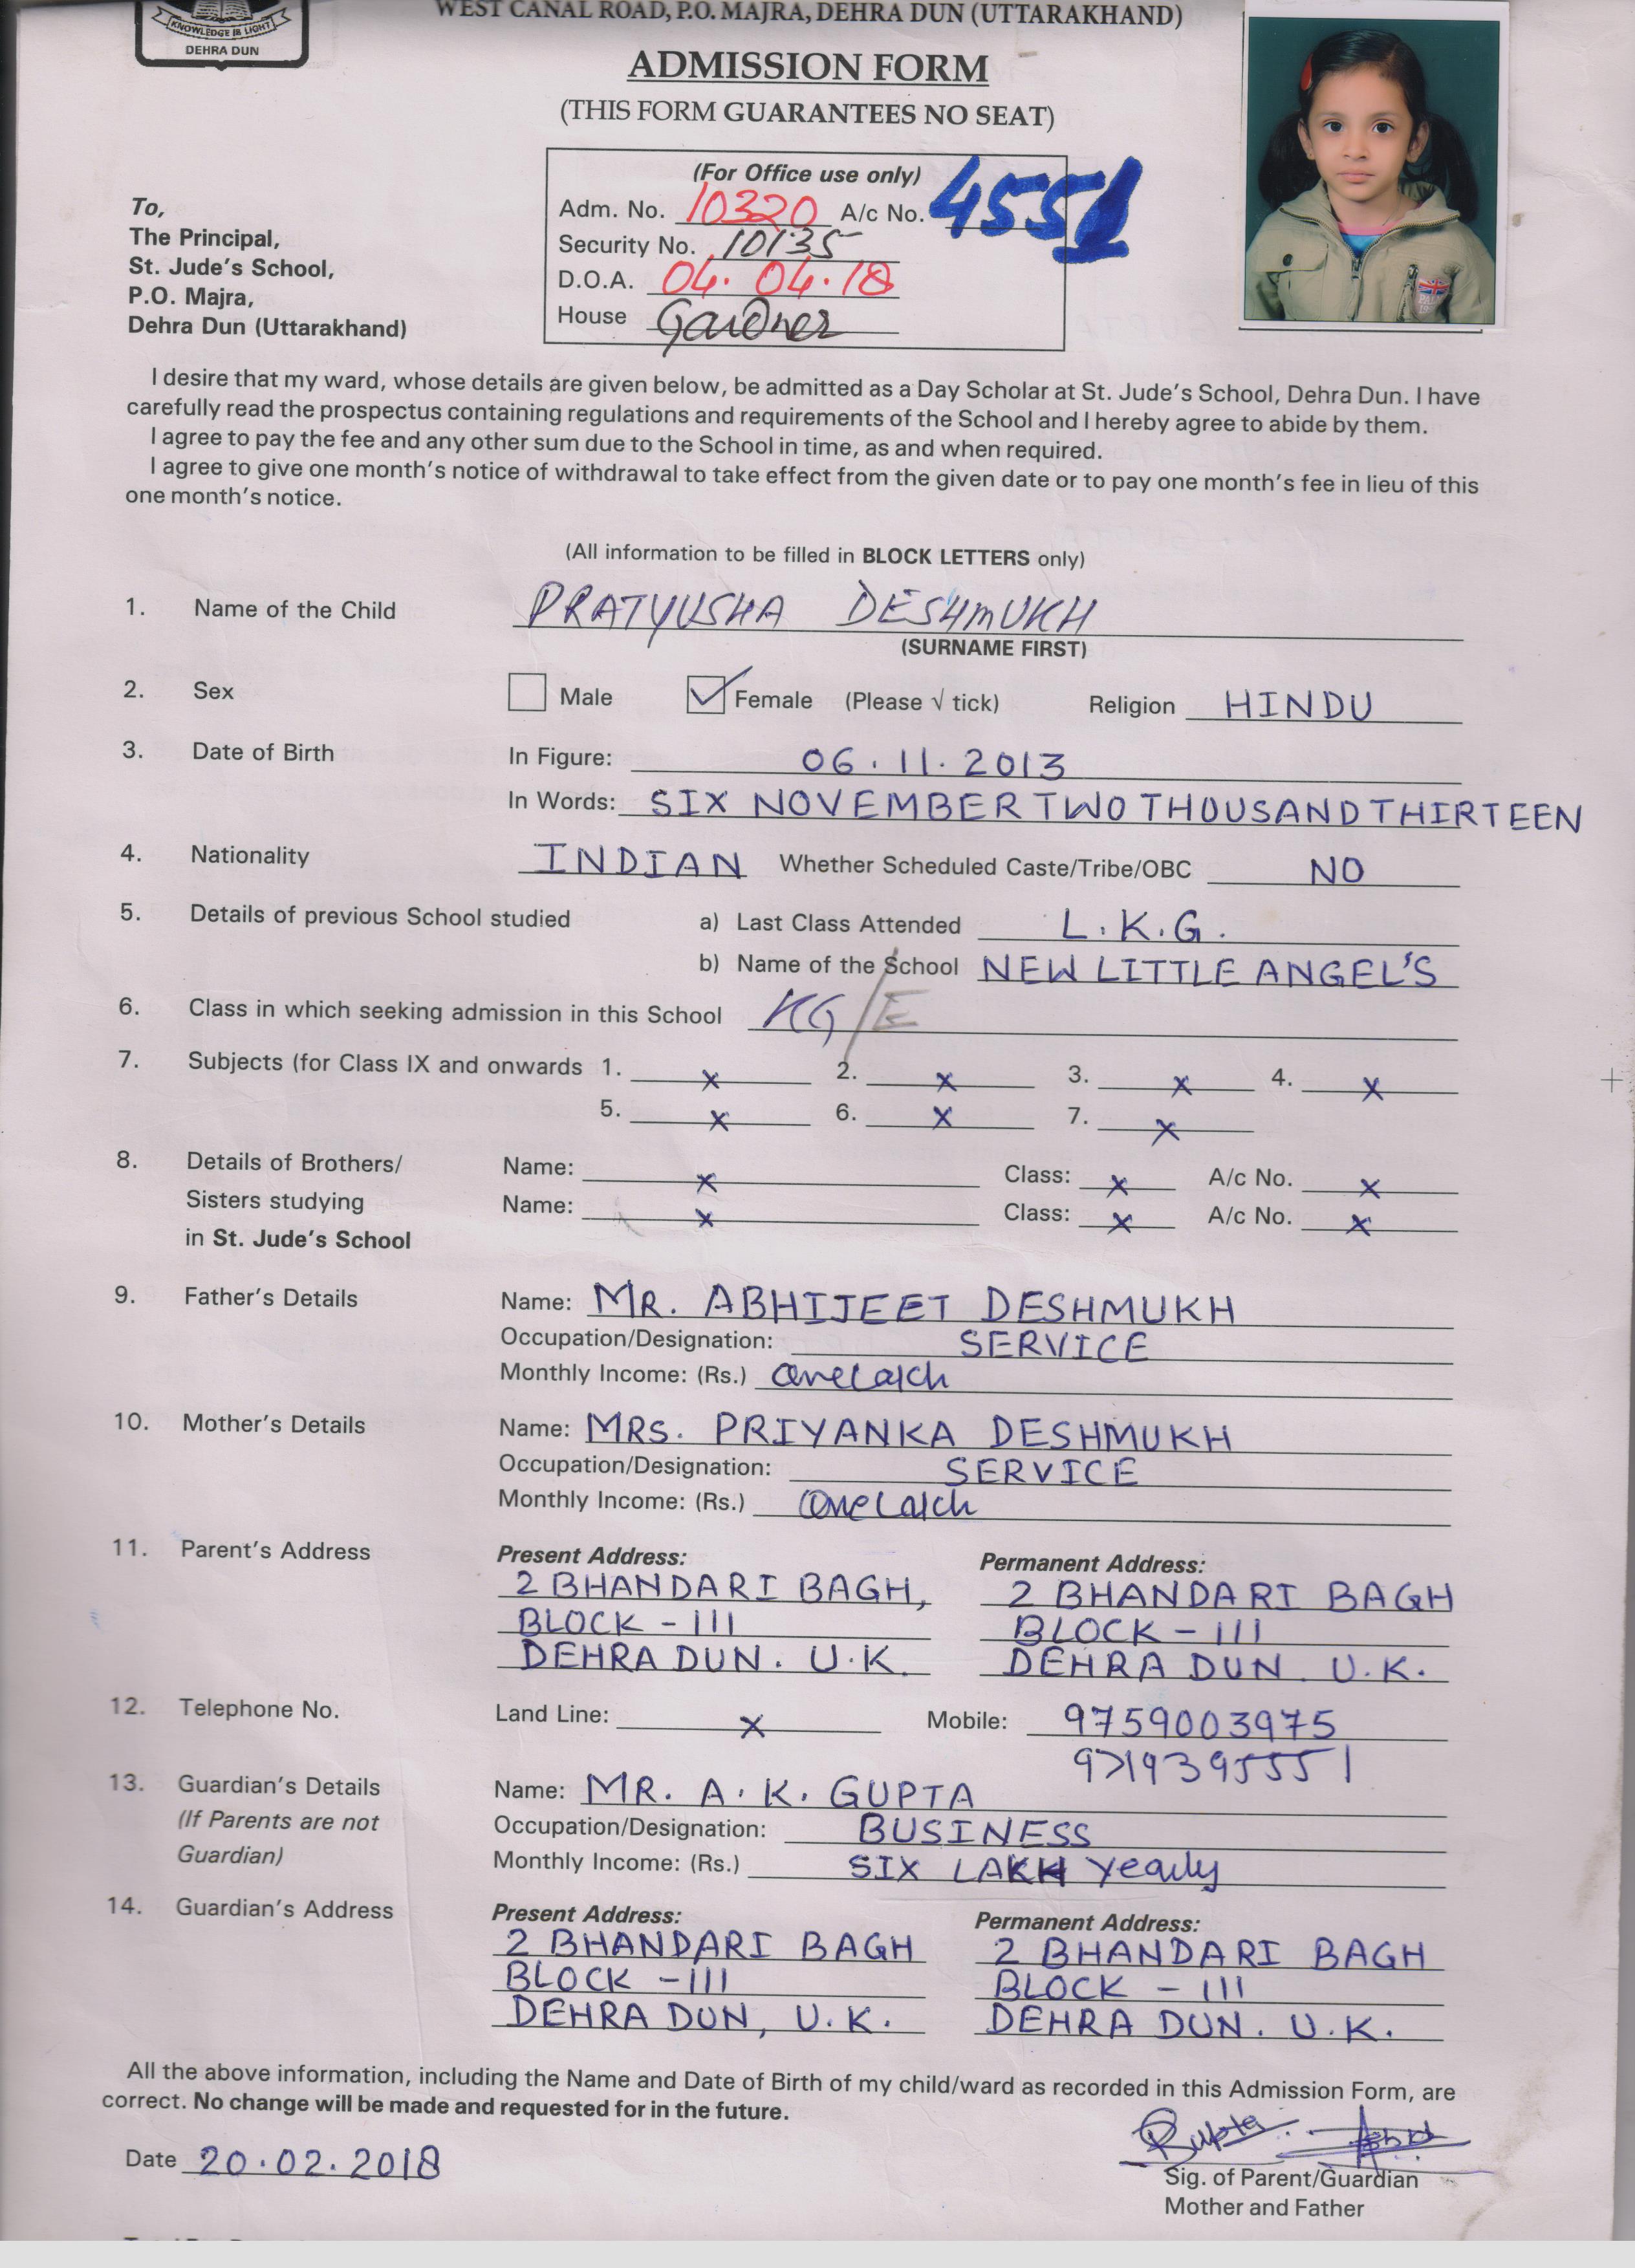 KNOWLEDGE IS LIGHT
DEHRA DUN
WEST CANAL ROAD, P.O. MAJRA, DEHRA DUN (UTTARAKHAND)
ADMISSION FORM
(THIS FORM GUARANTEES NO SEAT)
(For Office use only)
Adm. No. 10320 A/c No. 4551
Security No. 10135
D.O.A. 04.04.18
House Gardner
To,
The Principal,
St. Jude's School,
P.O. Majra,
Dehra Dun (Uttarakhand)
I desire that my ward, whose details are given below, be admitted as a Day Scholar at St. Jude's School, Dehra Dun. I have
carefully read the prospectus containing regulations and requirements of the School and I hereby agree to abide by them.
I agree to pay the fee and any other sum due to the School in time, as and when required.
I agree to give one month's notice of withdrawal to take effect from the given date or to pay one month's fee in lieu of this
one month's notice.
(All information to be filled in BLOCK LETTERS only)
1. Name of the Child PRATYUSHA DESHMUKH
(SURNAME FIRST)
2. Sex Male Female (Please √ tick) Religion HINDU
3. Date of Birth In Figure: 06.11.2013
In Words: SIX NOVEMBER TWO THOUSAND THIRTEEN
4. Nationality INDIAN Whether Scheduled Caste/Tribe/OBC NO
5. Details of previous School studied a) Last Class Attended L.K.G.
b) Name of the School NEW LITTLE ANGEL'S
6. Class in which seeking admission in this School KG/E
7. Subjects (for Class IX and onwards 1. x 2. x 3. x 4. x
5. x 6. x 7. x
8. Details of Brothers/ Name: x Class: x A/c No. x
Sisters studying Name: x Class: x A/c No. x
in St. Jude's School
9. Father's Details Name: MR. ABHIJEET DESHMUKH
Occupation/Designation: SERVICE
Monthly Income: (Rs.) One Lakh
10. Mother's Details Name: MRS. PRIYANKA DESHMUKH
Occupation/Designation: SERVICE
Monthly Income: (Rs.) One Lakh
11. Parent's Address Present Address: Permanent Address:
2 BHANDARI BAGH, 2 BHANDARI BAGH
BLOCK - III BLOCK - III
DEHRA DUN. U.K. DEHRA DUN. U.K.
12. Telephone No. Land Line: x Mobile: 9759003975
9719395551
13. Guardian's Details Name: MR. A. K. GUPTA
(If Parents are not Occupation/Designation: BUSINESS
Guardian) Monthly Income: (Rs.) SIX LAKH Yearly
14. Guardian's Address Present Address: Permanent Address:
2 BHANDARI BAGH 2 BHANDARI BAGH
BLOCK - III BLOCK - III
DEHRA DUN, U.K. DEHRA DUN. U.K.
All the above information, including the Name and Date of Birth of my child/ward as recorded in this Admission Form, are
correct. No change will be made and requested for in the future.
Date 20.02.2018
Sig. of Parent/Guardian
Mother and Father